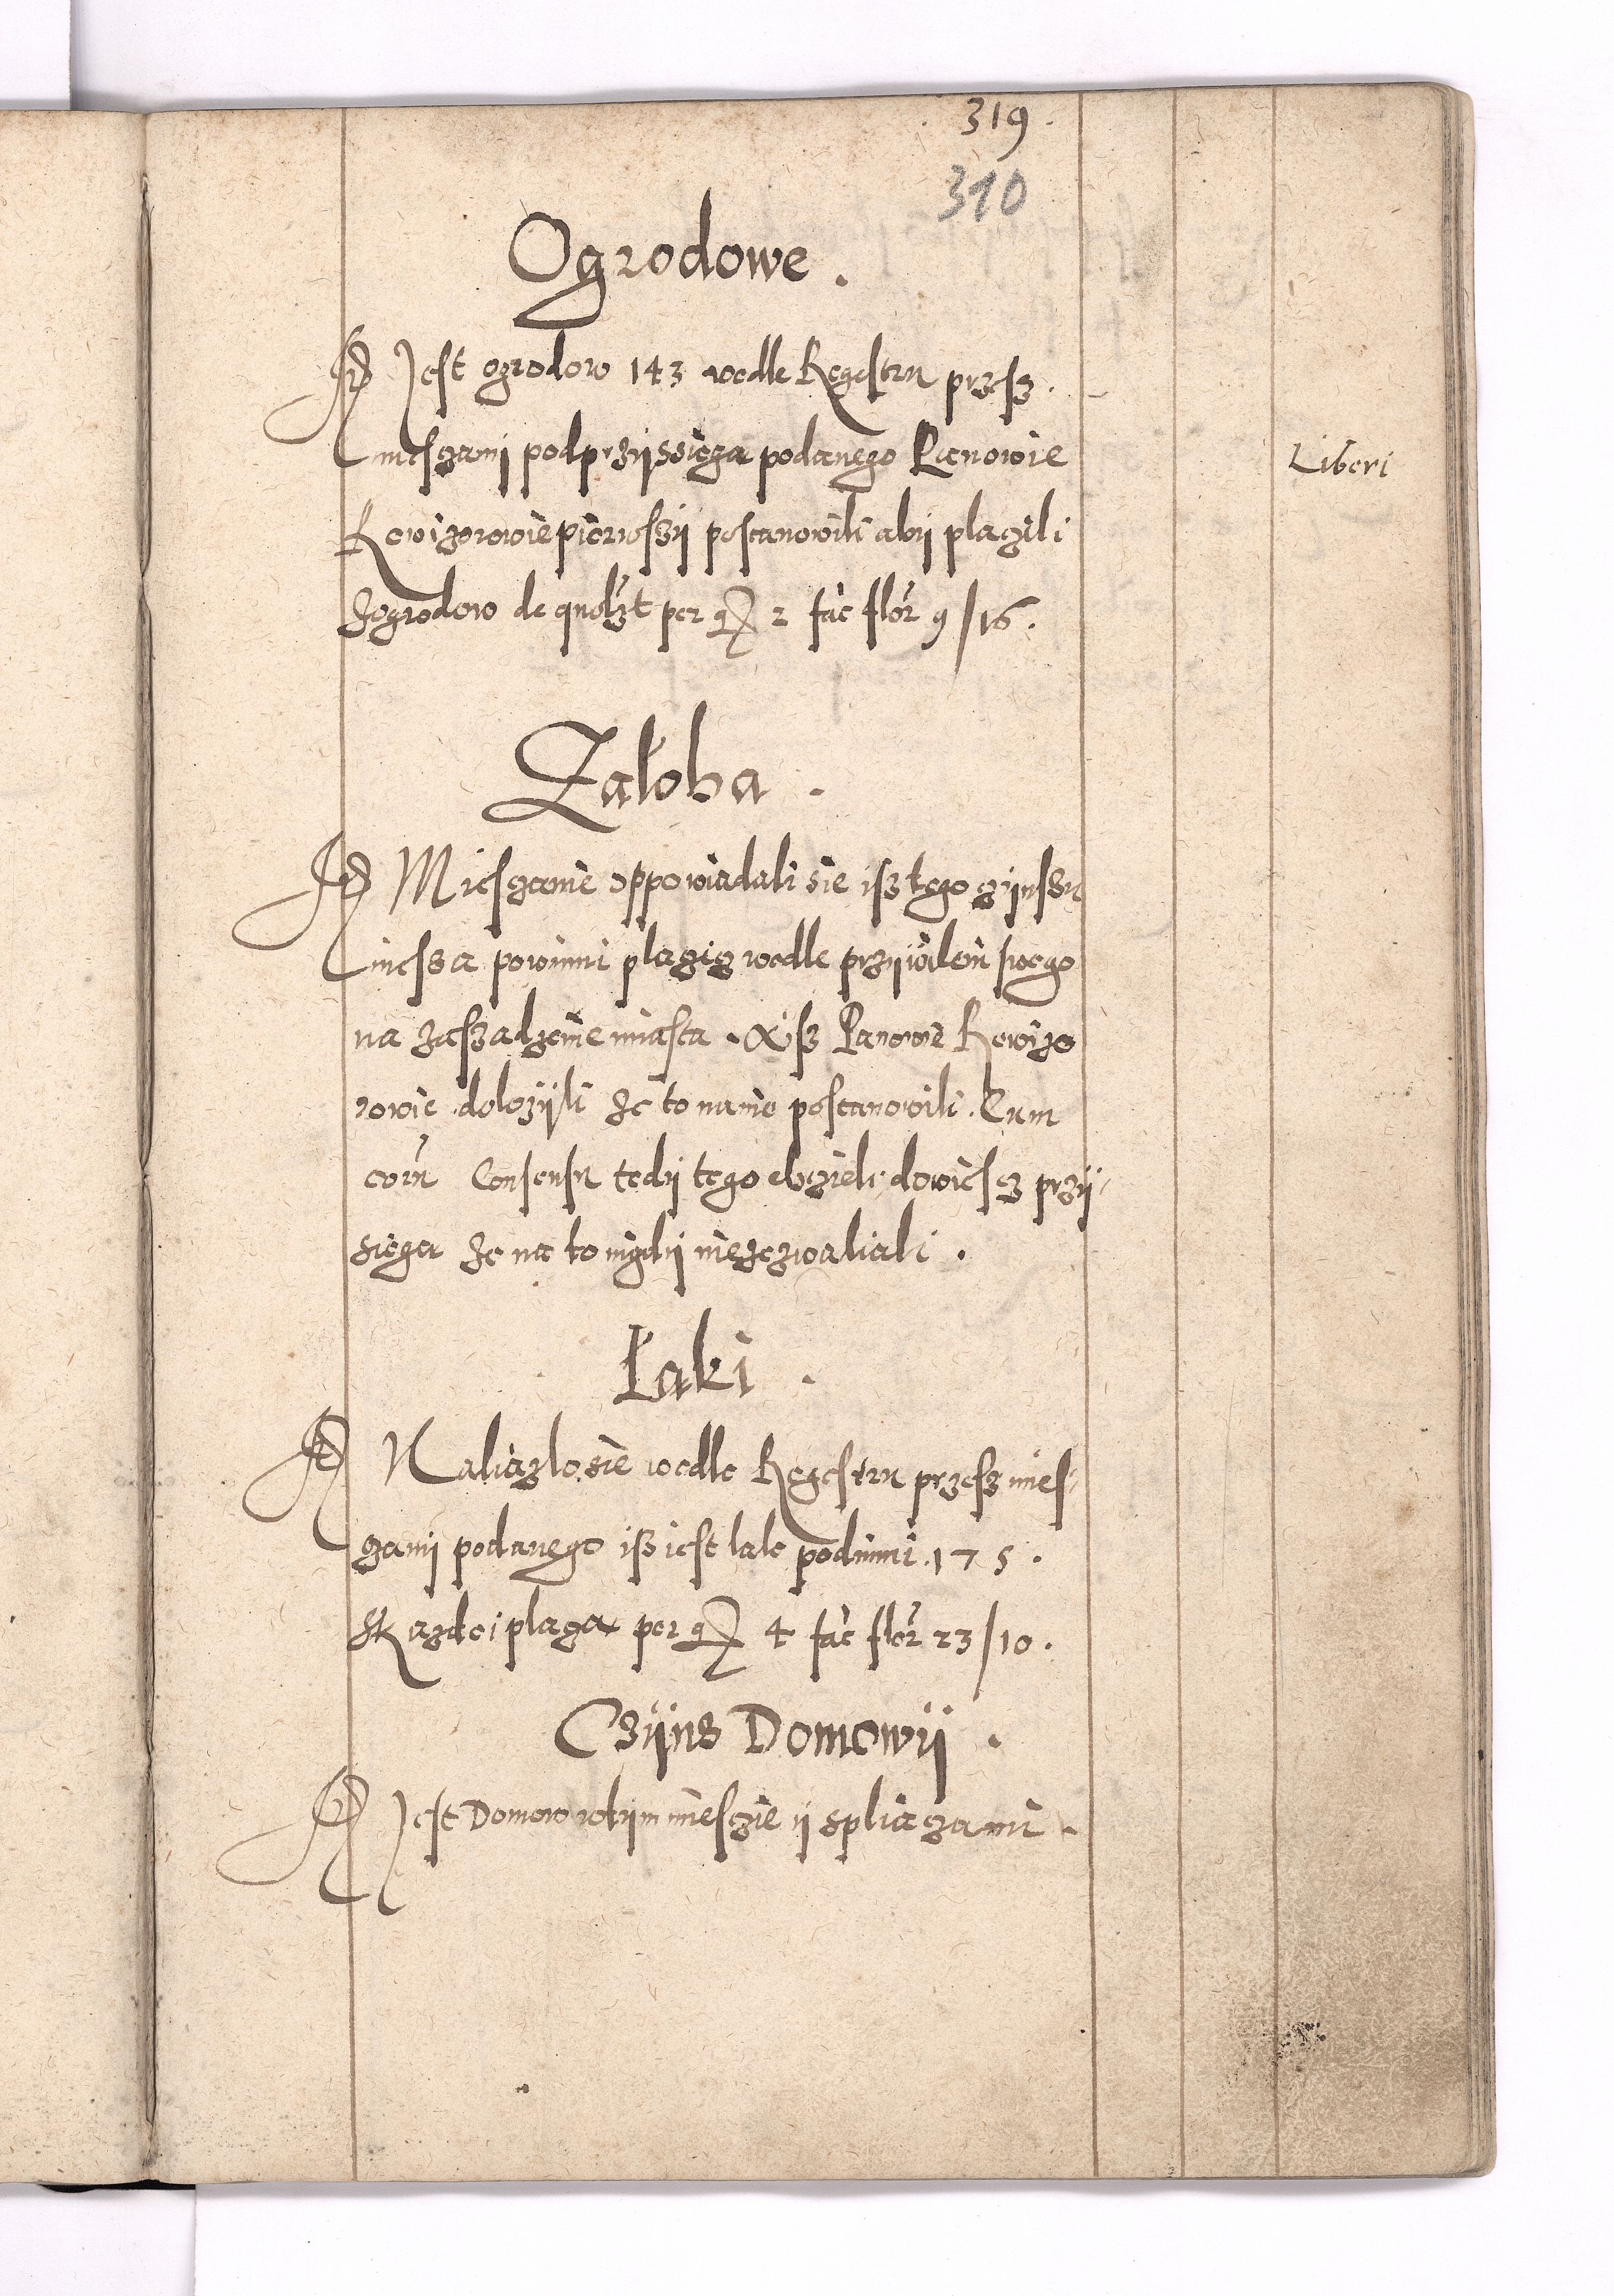 319
310
Ogrodowe .
Jest ogrodow 143 wedle Regestru przesz
miesczany podprzyssiega podanego Panowie
Rewizorowie pierwszy postanowili aby placzili
Zogrodow de quolzt per g 2 fac flor 9/16.
Liberi
Załoba .
Miesczanie oppowiadali sie isz tego czynszu
niessa powinni placzicz wedle przywilein swego
na zaszadzenie miasta . A isz Panowie Rewizo
rowie dolozyli Ze to nanie postanowili . Cum
eorū Consensu tedy tego chczieli dowiescz przy
siega Ze na to nigdy niezezwaliali .
Łaki .
Naliazlo sie wedle Regestru przesz mies
czany podanego isz iest lak podinni 175 .
SKazdei placza per g 4 fac flor 23/10 .
Czyns Domowy .
Jest Domow wtym miesczie y spliaczami .